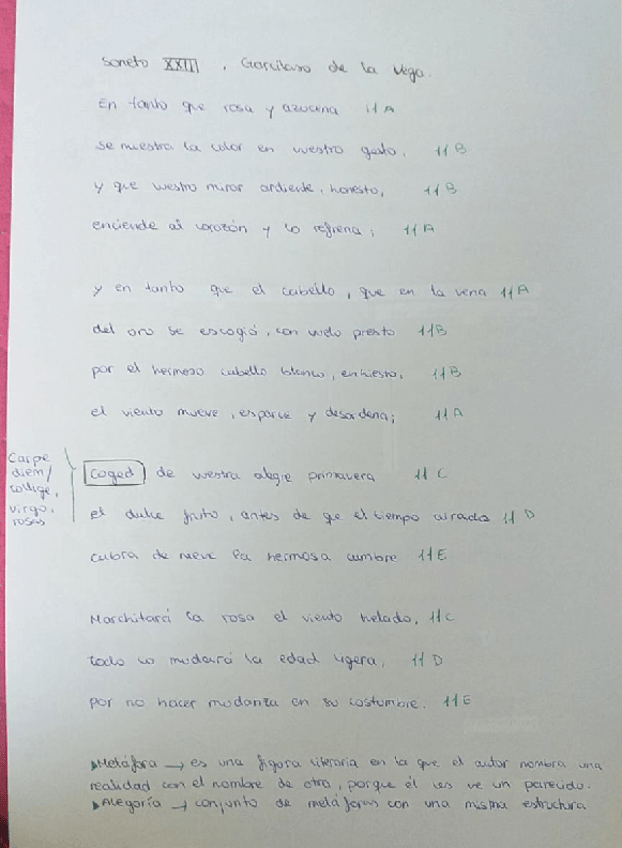 Soneto XXIII, Garcilaso de la Vega.
En tanto que rosa y azucena 11A
se muestra la color en vuestro gesto, 11B
y que vuestro mirar ardiente, honesto, 11B
enciende al corazón y lo refrena; 11A
y en tanto que el cabello, que en la vena 11A
del oro se escogió, con vuelo presto 11B
por el hermoso cabello blanco, enhiesto, 11B
el viento mueve, esparce y desordena; 11A
Carpe
diem/
collige,
virgo,
rosas
coged de vuestra alegre primavera 11C
el dulce fruto, antes de que el tiempo airado 11D
cubra de nieve la hermosa cumbre 11E
Marchitará la rosa el viento helado, 11C
todo lo mudará la edad ligera, 11D
por no hacer mudanza en su costumbre. 11E
▸Metáfora → es una figura literaria en la que el autor nombra una
realidad con el nombre de otra, porque él les ve un parecido.
▸Alegoría → conjunto de metáforas con una misma estructura